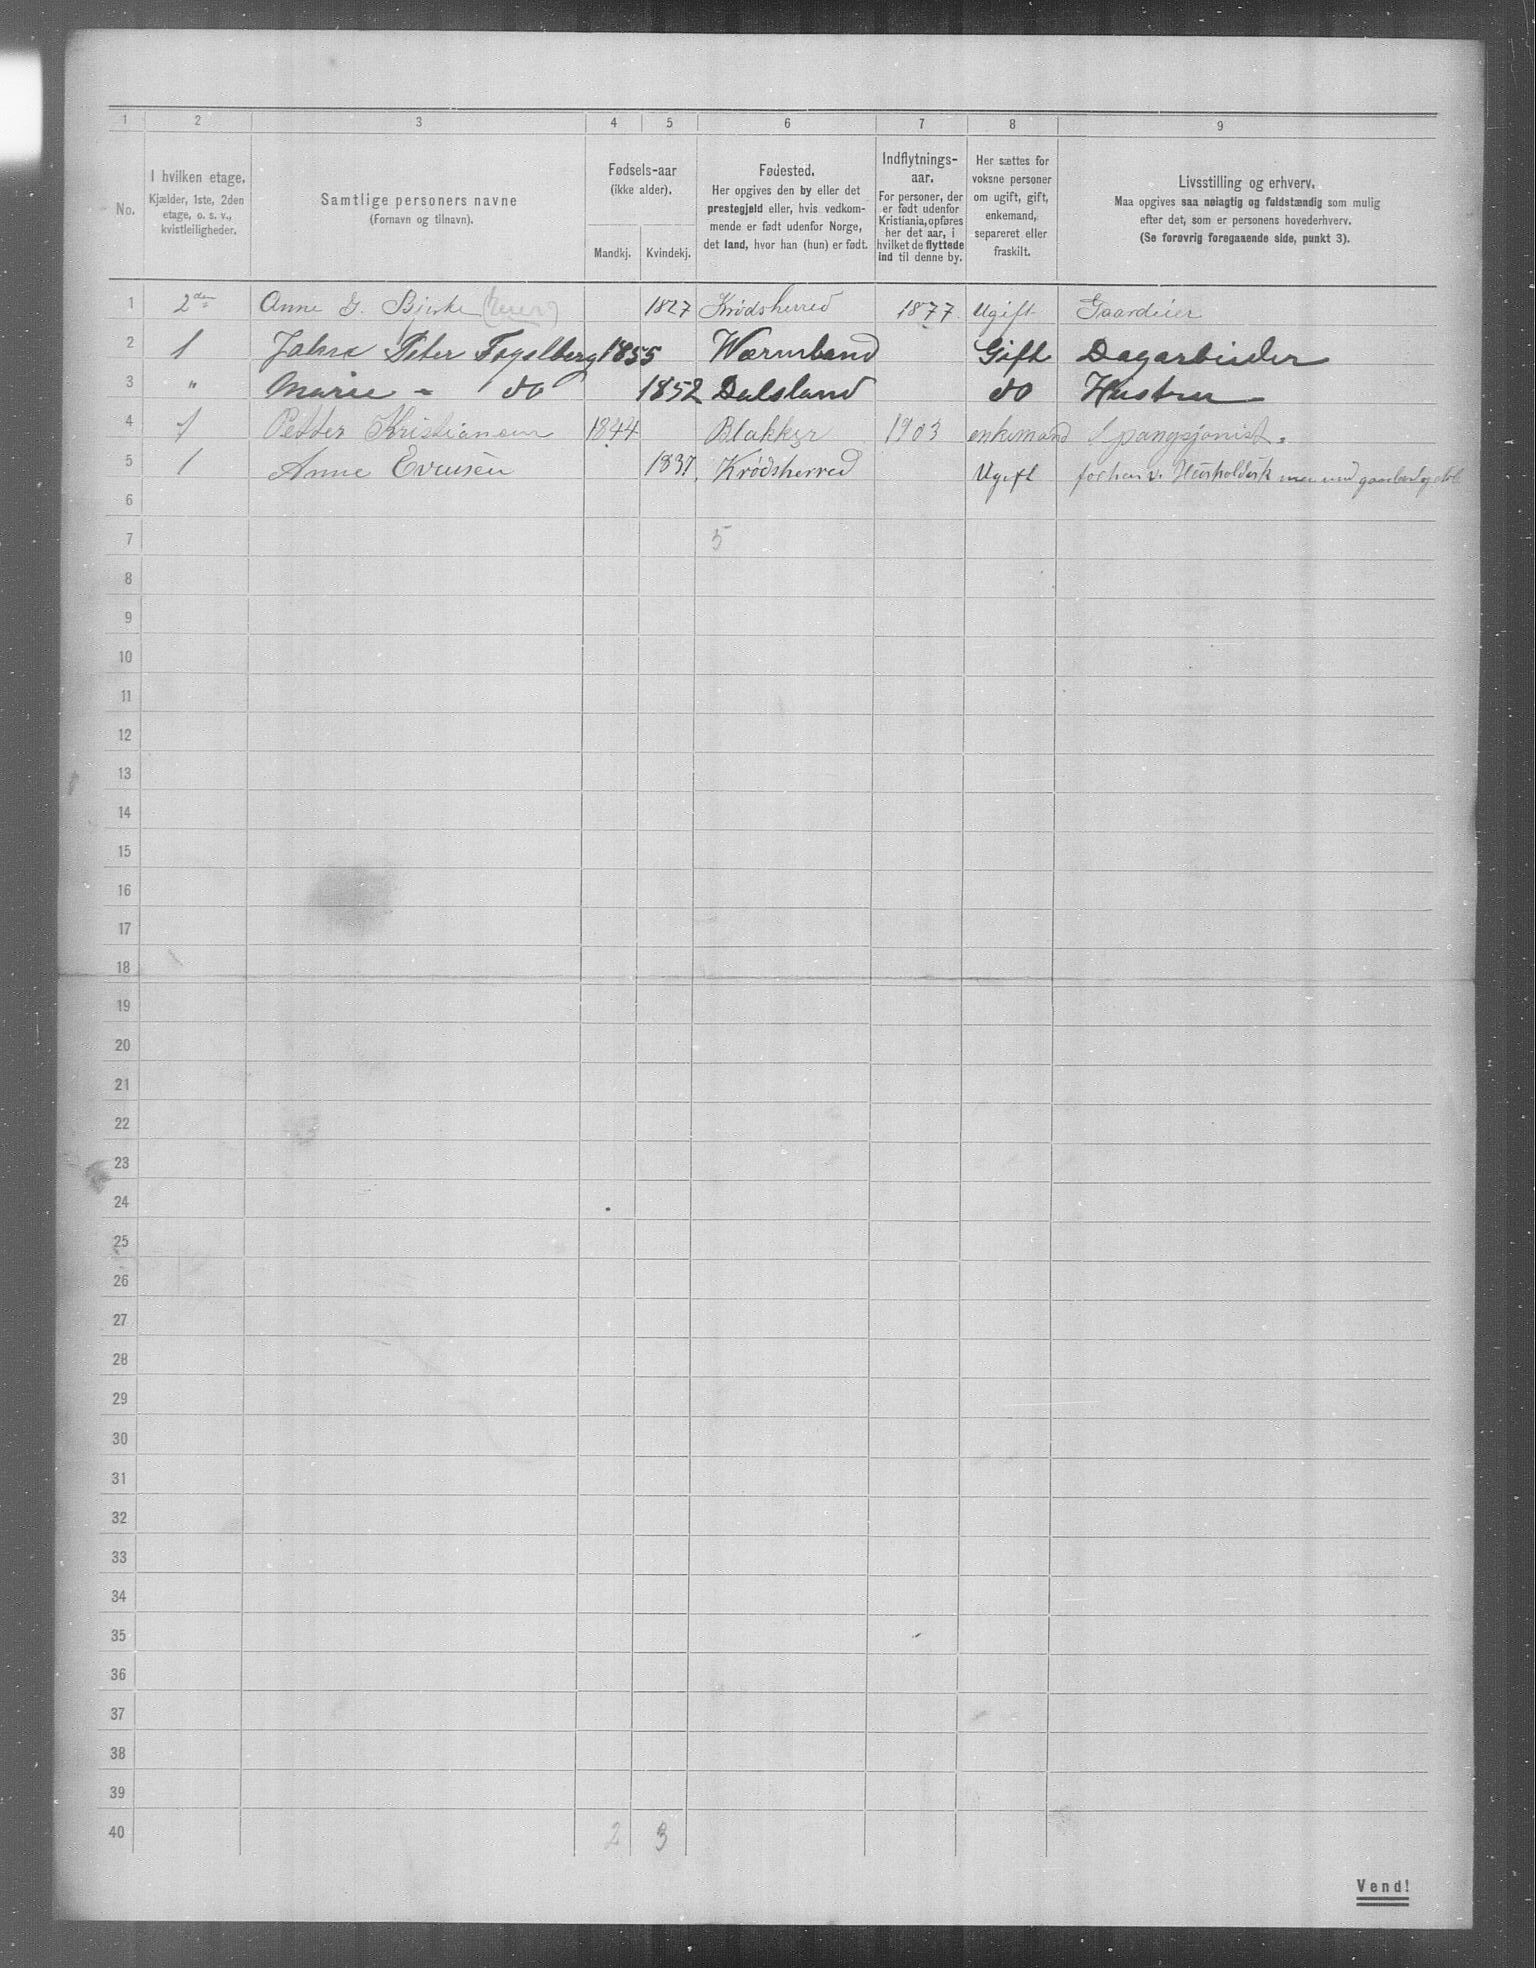 1 2 3 4 5 6 7 8 9
No.
I hvilken etage.
Kjælder, 1ste, 2den
etage, o. s. v.,
kvistleiligheder.
Samtlige personers navne
(Fornavn og tilnavn).
Fødsels-aar
(ikke alder).
Mandkj. Kvindekj.
Fødested.
Her opgives den by eller det
prestegjeld eller, hvis vedkom-
mende er født udenfor Norge,
det land, hvor han (hun) er født.
Indflytnings-
aar.
For personer, der
er født udenfor
Kristiania, opføres
her det aar, i
hvilket de flyttede
ind til denne by.
Her sættes for
voksne personer
om ugift, gift,
enkemand,
separeret eller
fraskilt.
Livsstilling og erhverv.
Maa opgives saa nøiagtig og fuldstændig som mulig
efter det, som er personens hovederhverv.
(Se forøvrig foregaaende side, punkt 3).
1 2den Anne G. Bjerke 1827 Krødsherred 1877 Ugift Gaardeier
2 1 Johns Peter Fogelberg 1855 Wærmland Gift Dagarbeider
3 " Marie - do 1852 Dalsland do Hustru
4 1 Petter Kristiansen 1844 Blakker 1903 enkemand
5 1 Anne Evensen 1837 Krødsherred Ugift
6
7 5
8
9
10
11
12
13
14
15
16
17
18
19
20
21
22
23
24
25
26
27
28
29
30
31
32
33
34
35
36
37
38
39
40 2 3
Vend!